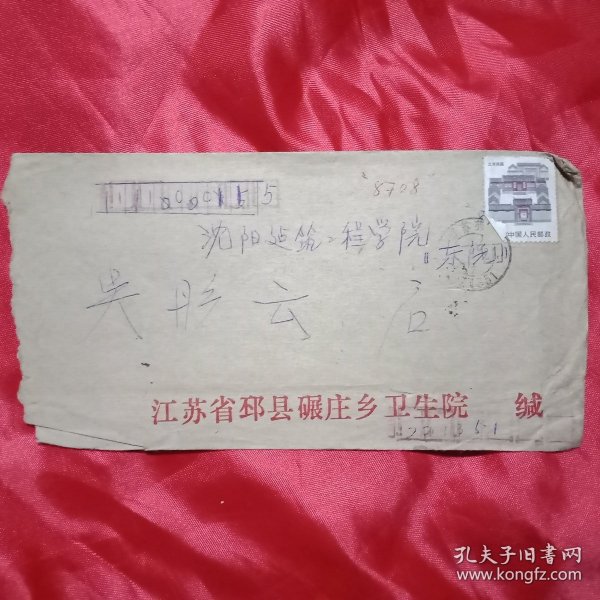 "8708"
沈阳建筑工程学院
东院
吴彤云 启
江苏省邳县碾庄乡卫生院 缄
221351
中国人民邮政
孔夫子旧书网
www.kongfz.com